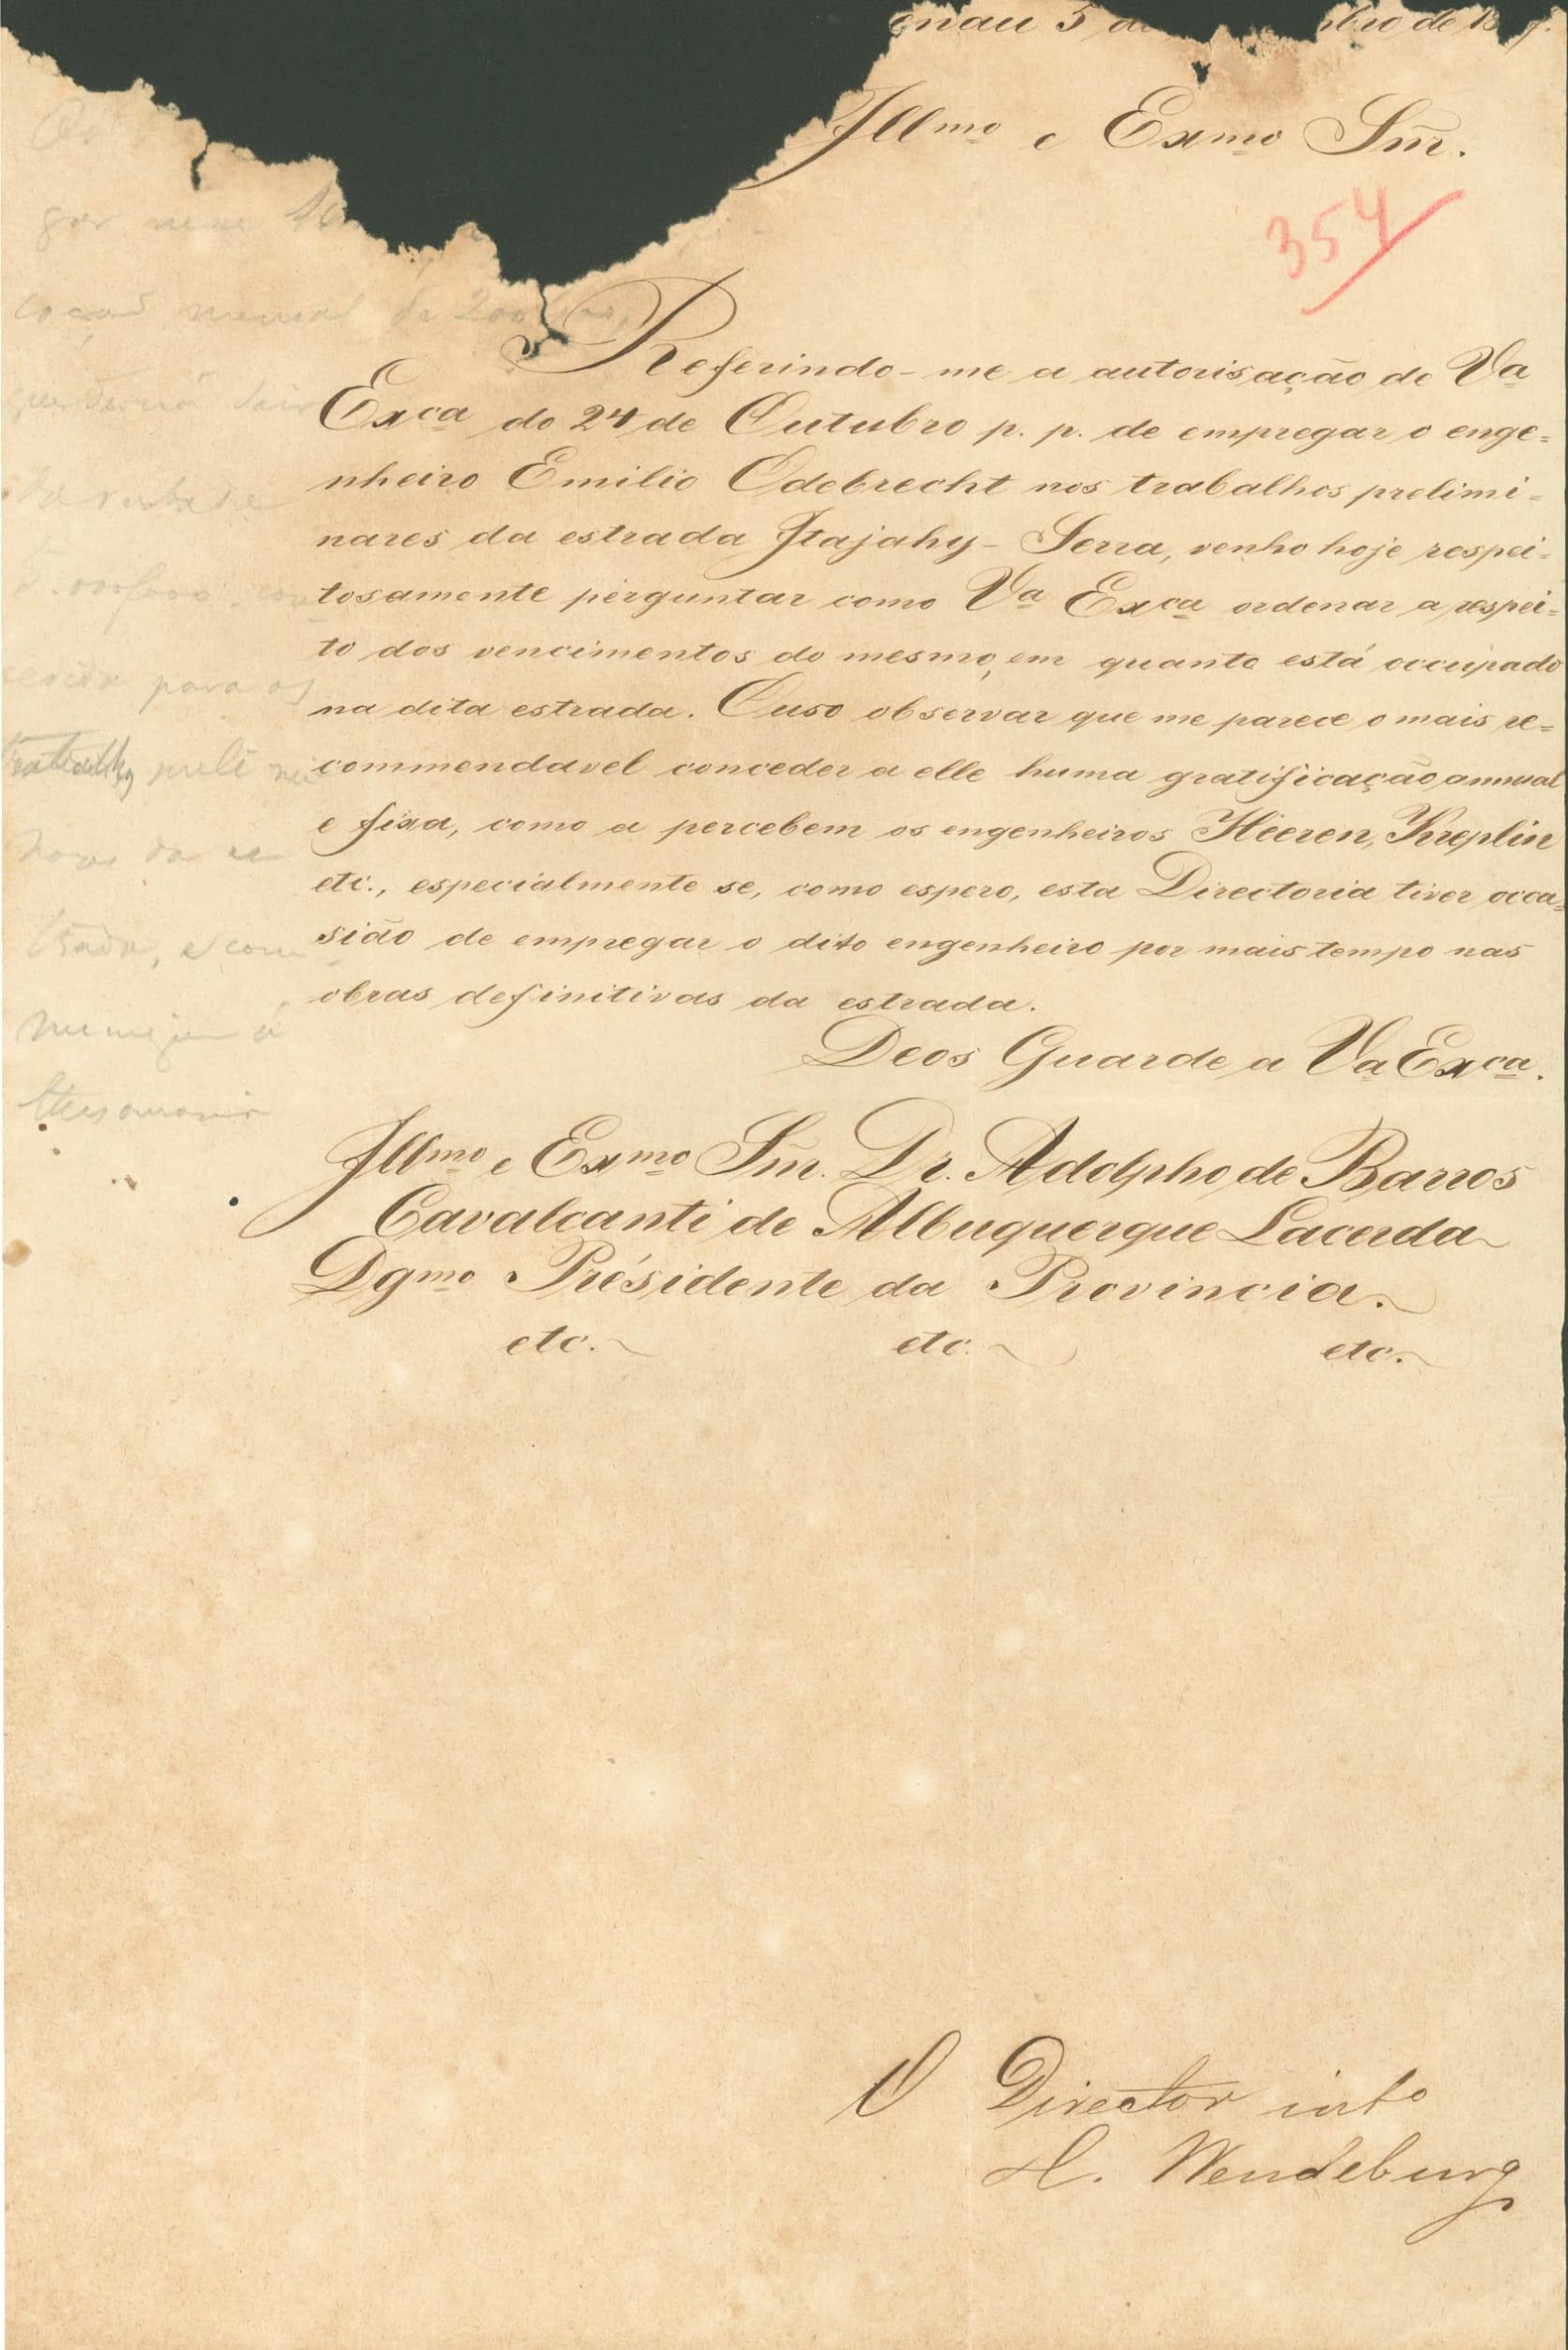 enau 5 de bro de 18
Illmo e Exmo Sñr.
354
Referindo-me a autorisação de Va
Exca do 24 de Outubro p. p. de empregar o enge=
nheiro Emilio Odebrecht nos trabalhos prelimi=
nares da estrada Itajahy-Serra, venho hoje respei=
tosamente perguntar como Va Exca ordenar a respei=
to dos vencimentos do mesmo, em quanto está occupado
na dita estrada. Ouso observar que me parece o mais re=
commendavel conceder a elle huma gratificação annual
e fixa, como a percebem os engenheiros Heeren, Kreplin
etc., especialmente se, como espero, esta Directoria tiver occa=
sião de empregar o dito engenheiro por mais tempo nas
obras definitivas da estrada.
Deos Guarde a Va Exca.
Illmo e Exmo Sñr. Dr. Adolpho de Barros
Cavalcanti de Albuquerque Lacerda
Dgmo Présidente da Provincia.
etc. etc. etc.
O Director into
H. Wendeburg
mensal de 200
para os
trabalhos
trada, e com
thesouraria